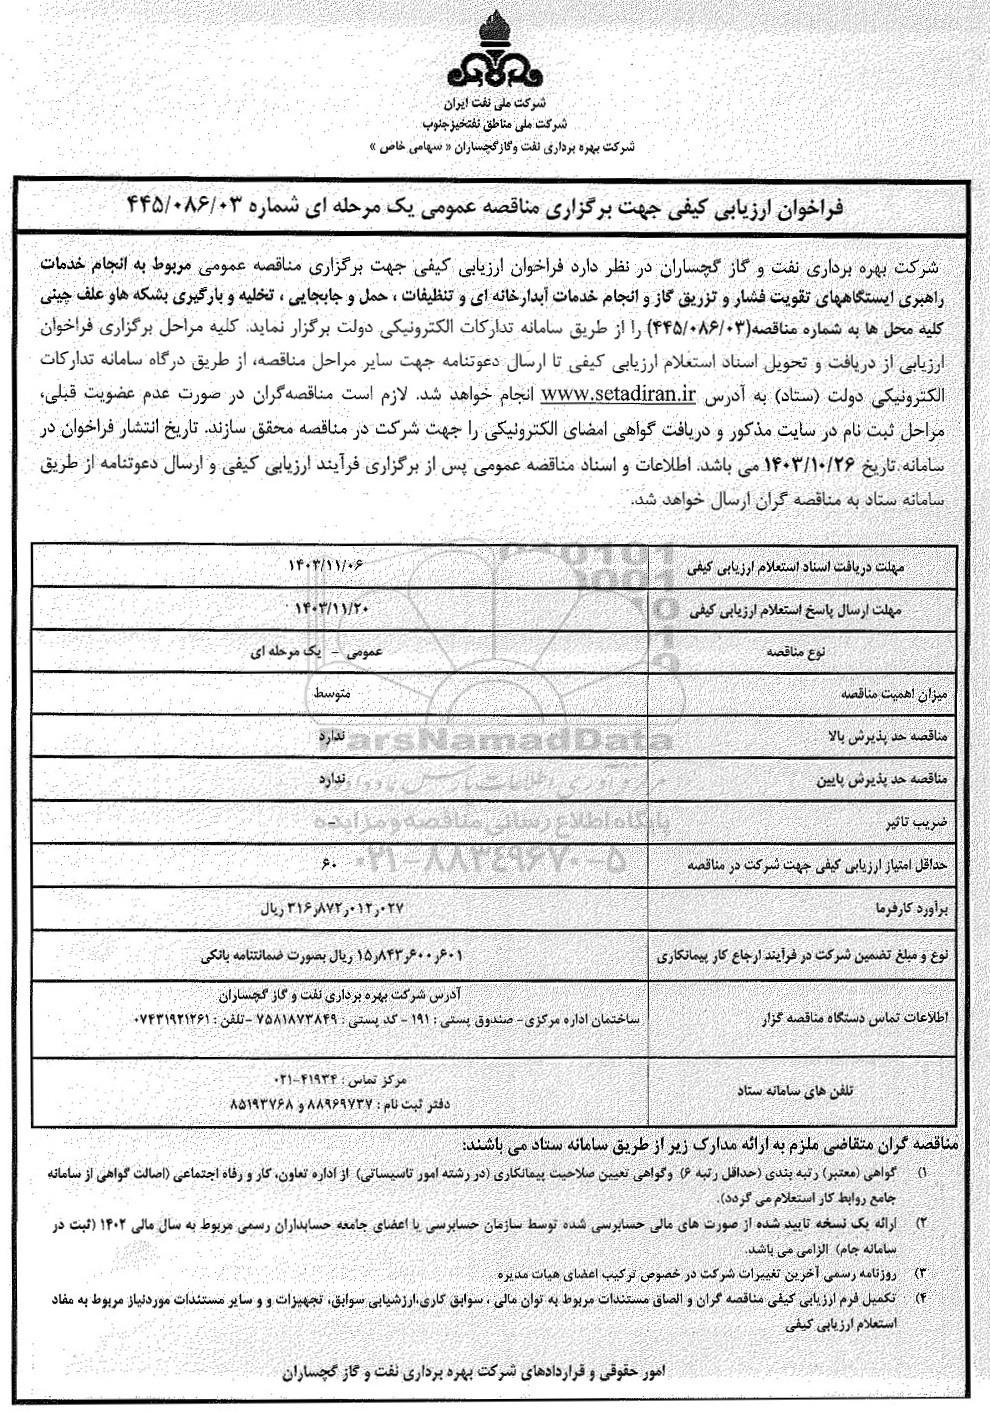 شرکت ملی نفت ایران
شرکت ملی مناطق نفتخیزجنوب
شرکت بهره برداری نفت وگازگچساران « سهامی خاص »
فراخوان ارزیابی کیفی جهت برگزاری مناقصه عمومی یک مرحله ای شماره ۴۴۵/۰۸۶/۰۳
شرکت بهره برداری نفت و گاز گچساران در نظر دارد فراخوان ارزیابی کیفی جهت برگزاری مناقصه عمومی مربوط به انجام خدمات
راهبری ایستگاههای تقویت فشار و تزریق گاز و انجام خدمات آبدارخانه ای و تنظیفات ، حمل و جابجایی ، تخلیه و بارگیری بشکه هاو علف چینی
کلیه محل ها به شماره مناقصه(۴۴۵/۰۸۶/۰۳) را از طریق سامانه تدارکات الکترونیکی دولت برگزار نماید. کلیه مراحل برگزاری فراخوان
ارزیابی از دریافت و تحویل اسناد استعلام ارزیابی کیفی تا ارسال دعوتنامه جهت سایر مراحل مناقصه، از طریق درگاه سامانه تدارکات
الکترونیکی دولت (ستاد) به آدرس www.setadiran.ir انجام خواهد شد. لازم است مناقصه‌گران در صورت عدم عضویت قبلی،
مراحل ثبت نام در سایت مذکور و دریافت گواهی امضای الکترونیکی را جهت شرکت در مناقصه محقق سازند. تاریخ انتشار فراخوان در
سامانه تاریخ ۱۴۰۳/۱۰/۲۶ می باشد. اطلاعات و اسناد مناقصه عمومی پس از برگزاری فرآیند ارزیابی کیفی و ارسال دعوتنامه از طریق
سامانه ستاد به مناقصه گران ارسال خواهد شد.
مهلت دریافت اسناد استعلام ارزیابی کیفی ۱۴۰۳/۱۱/۰۶
مهلت ارسال پاسخ استعلام ارزیابی کیفی ۱۴۰۳/۱۱/۲۰
نوع مناقصه عمومی - یک مرحله ای
میزان اهمیت مناقصه متوسط
مناقصه حد پذیرش بالا ندارد
مناقصه حد پذیرش پایین ندارد
ضریب تاثیر -
حداقل امتیاز ارزیابی کیفی جهت شرکت در مناقصه ۶۰
برآورد کارفرما ۳۱۶٫۸۷۲٫۰۱۲٫۰۲۷ ریال
نوع و مبلغ تضمین شرکت در فرآیند ارجاع کار پیمانکاری ۱۵٫۸۴۳٫۶۰۰٫۶۰۱ ریال بصورت ضمانتنامه بانکی
آدرس شرکت بهره برداری نفت و گاز گچساران
اطلاعات تماس دستگاه مناقصه گزار ساختمان اداره مرکزی- صندوق پستی : ۱۹۱ - کد پستی : ۷۵۸۱۸۷۳۸۴۹ -تلفن : ۰۷۴۳۱۹۲۱۲۶۱
مرکز تماس : ۴۱۹۳۴-۰۲۱
تلفن های سامانه ستاد
دفتر ثبت نام : ۸۸۹۶۹۷۳۷ و ۸۵۱۹۳۷۶۸
ParsNamadData
پایگاه اطلاع رسانی مناقصه و مزایده
۰۲۱-۸۸۳۴۹۶۷۰-۵
مناقصه گران متقاضی ملزم به ارائه مدارک زیر از طریق سامانه ستاد می باشند:
۱) گواهی (معتبر) رتبه بندی (حداقل رتبه ۶) وگواهی تعیین صلاحیت پیمانکاری (در رشته امور تاسیساتی) از اداره تعاون، کار و رفاه اجتماعی (اصالت گواهی از سامانه
جامع روابط کار استعلام می گردد).
۲) ارائه یک نسخه تایید شده از صورت های مالی حسابرسی شده توسط سازمان حسابرسی یا اعضای جامعه حسابداران رسمی مربوط به سال مالی ۱۴۰۲ (ثبت در
سامانه جام) الزامی می باشد.
۳) روزنامه رسمی آخرین تغییرات شرکت در خصوص ترکیب اعضای هیات مدیره
۴) تکمیل فرم ارزیابی کیفی مناقصه گران و الصاق مستندات مربوط به توان مالی ، سوابق کاری،ارزشیابی سوابق، تجهیزات و و سایر مستندات موردنیاز مربوط به مفاد
استعلام ارزیابی کیفی
امور حقوقی و قراردادهای شرکت بهره برداری نفت و گاز گچساران